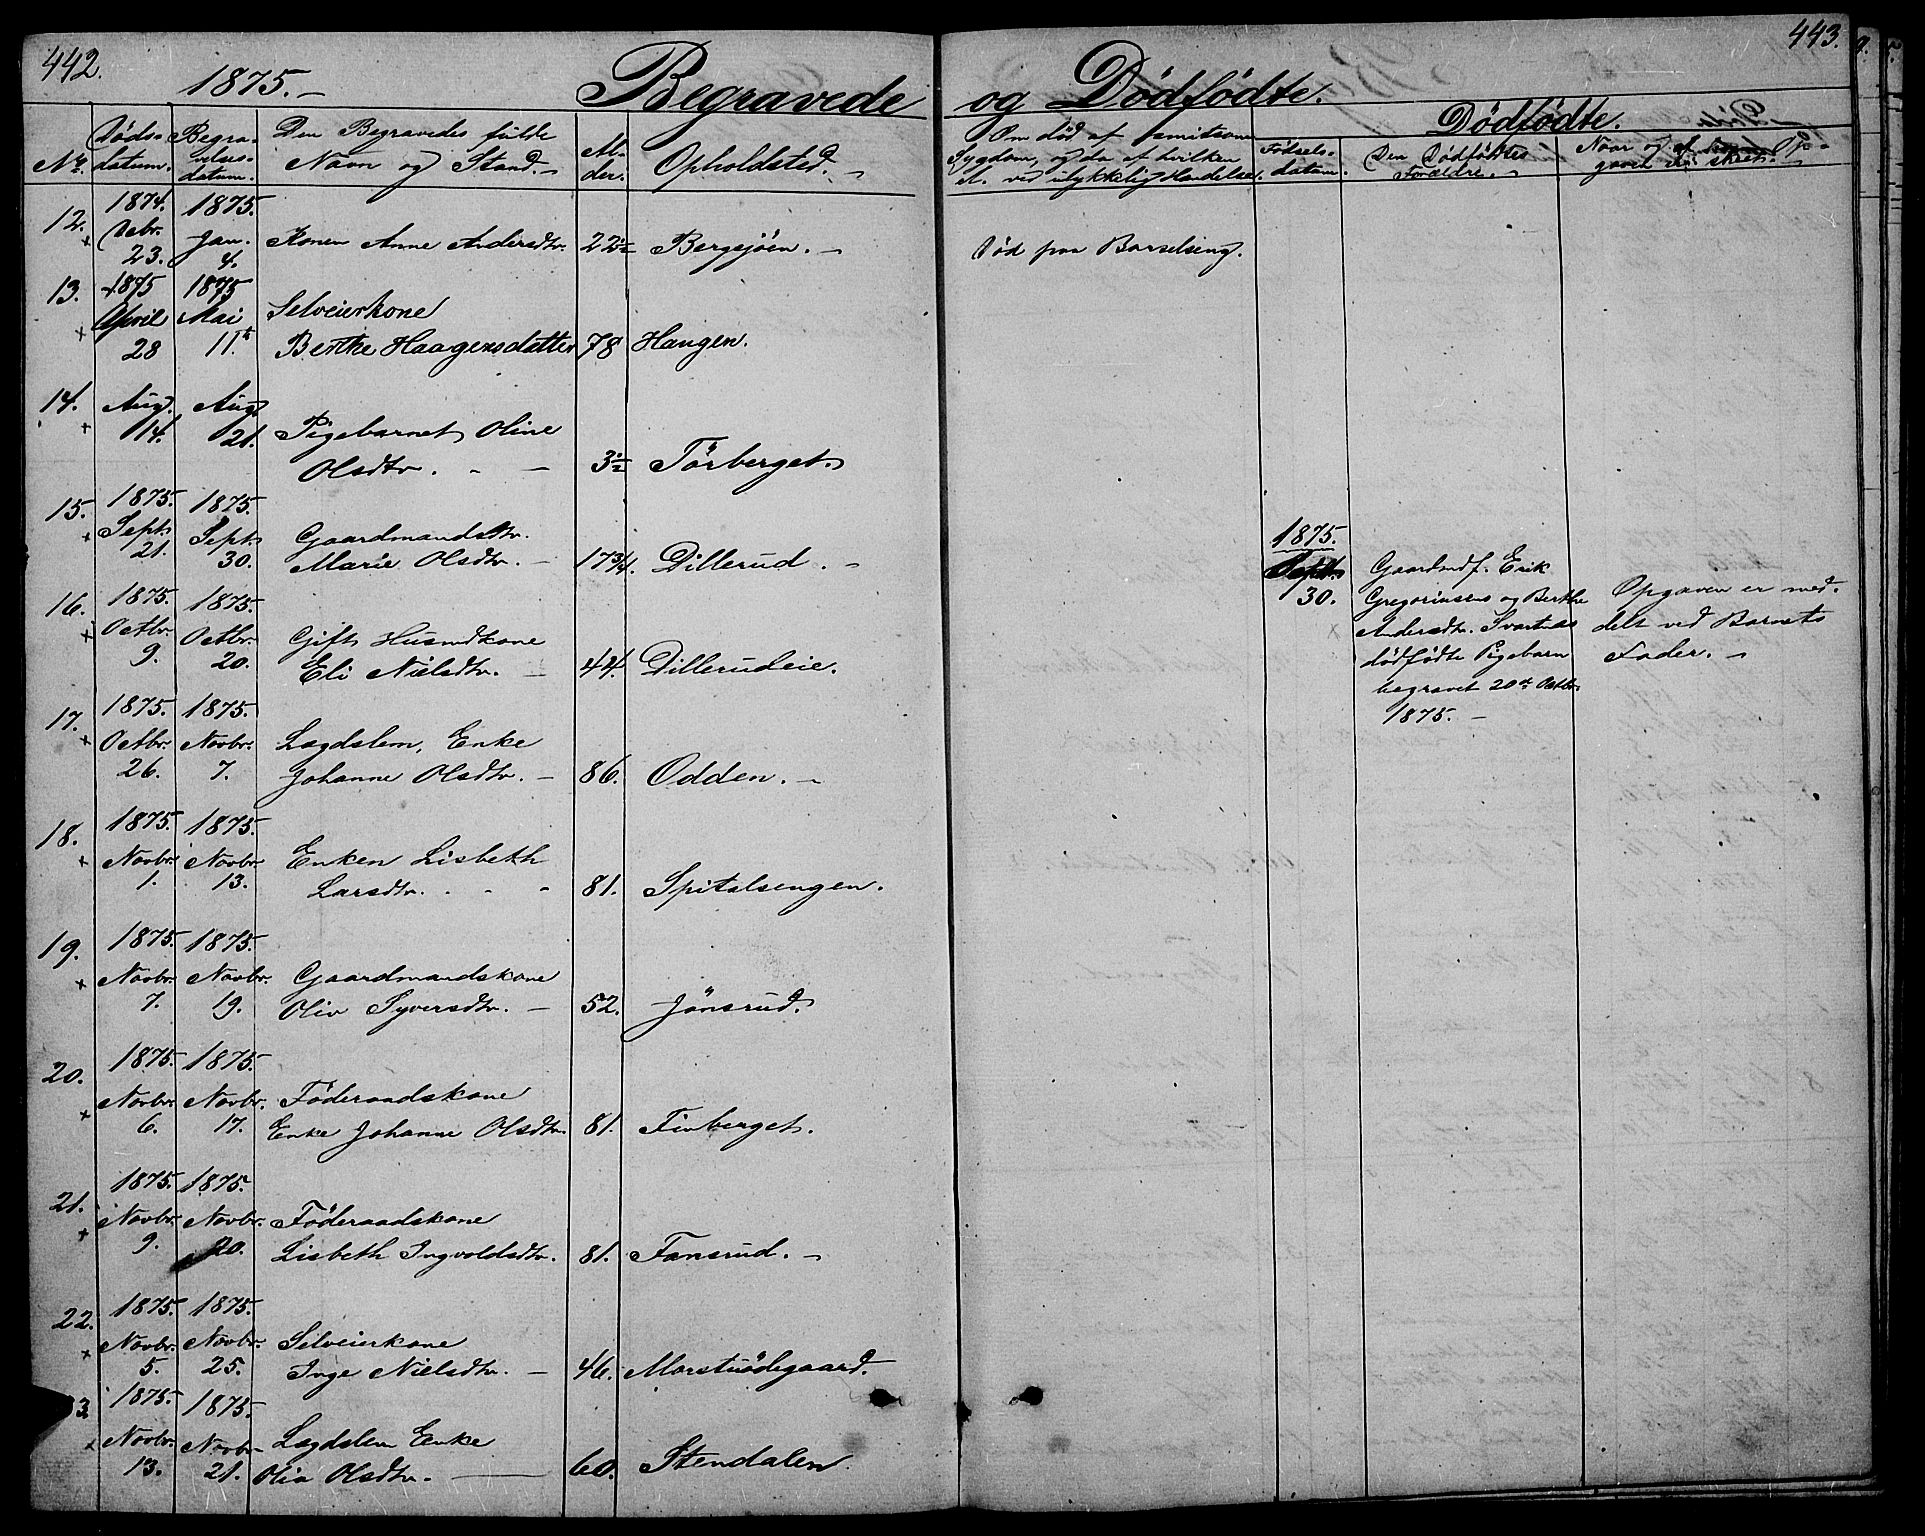 442.
443.
1875.-
Begravede og Dødfødte.
Dødfødte.
No.
Døds-
datum.
Begra-
velses-
datum.
Den Begravedes fulde
Navn og Stand. -
Al-
der.
Opholdsted. -
Om død af smitsom
Sygdom, og da af hvilken
el. ved ulykkelig Hændelse.
Fødsels-
datum.
Den Dødfødtes
Forældre. -
Naar og af
12. 1874. 1875.
Decbr. Jan. Konen Anne Andersdtr. 22½ Bergsjøen. - Død paa Barselseng.
23. 4.
13. 1875 1875
April Mai Selveierkone
28 11te Berthe Haagensdatter 78 Haugen.
14. Aug. Aug.
14. 21. Pigebarnet Oline
Olsdtr. - - 3½ Tørberget.
15. 1875. 1875.
Sept. Sept. Gaardmandsdtr.
21. 30. Marie Olsdtr. - 17¾. Dillerud. -
1875.
Sept.
30.
Gaardmdf. Erik
Gregoriusens og Berthe
Andersdtr. Svartnæs
dødfødte Pigebarn
begravet 20de Octbr.
1875. -
Opgaven er med-
delt ved Barnets
Fader. -
16. 1875. 1875.
Octbr. Octbr. Gift Husmdkone
9. 20. Eli Nielsdtr. - 44. Dillerudeie.
17. 1875. 1875.
Octbr. Novbr. Lægdslem, Enke
26. 7. Johanne Olsdtr. - 86. Odden. -
18. 1875. 1875.
Novbr. Novbr. Enken Lisbeth
1. 13. Larsdtr. - - - 81. Spitalsengen.
19. 1875. 1875.
Novbr. Novbr. Gaardmandskone
7. 19. Oliv Syversdtr. - 52. Jønsrud.
20. 1875. 1875.
Novbr. Novbr. Føderaadskone
6. 17. Enke Johanne Olsdtr. 81. Finberget.
21. 1875. 1875.
Novbr. Novbr. Føderaadskone
9. 20. Lisbeth Ingvoldsdtr. 81. Fansrud. -
22. 1875. 1875.
Novbr. Novbr. Selveierkone
5. 25. Inge Nielsdtr. - 46. Morstuødegaard.
3 1875. 1875.
Novbr. Novbr. Lægdslem Enke
13. 21. Olia Olsdtr. - 60. Stendalen.